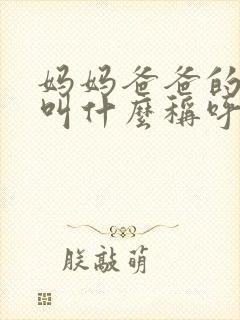 妈妈爸爸的
叫什麼稱呼
朕敲萌